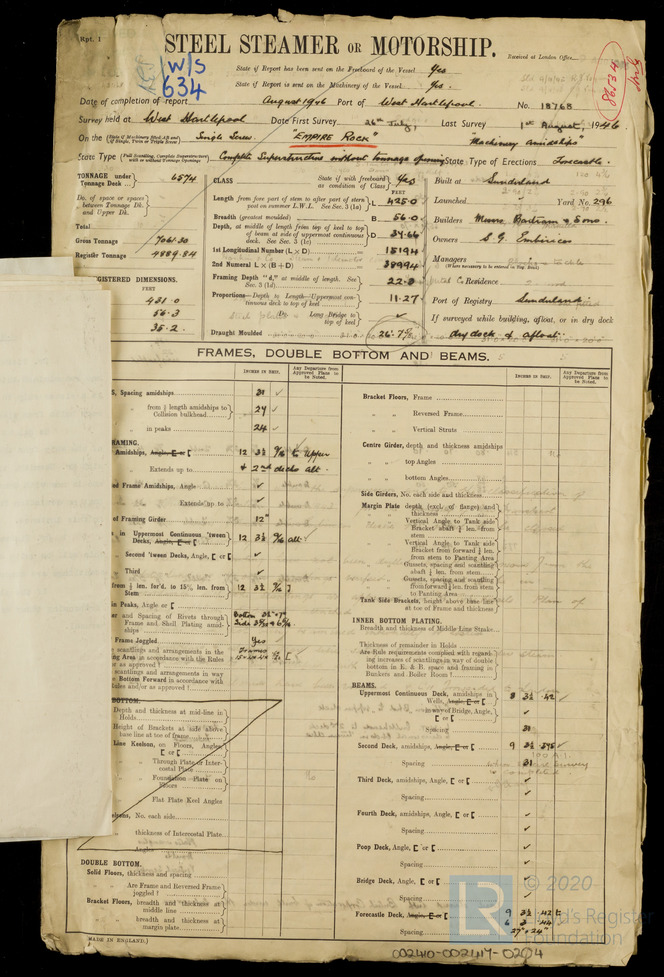 Rpt. 1
W/S
634
STEEL STEAMER OR MOTORSHIP.
Received at London Office
State if Report has been sent on the Freeboard of the Vessel Yes
State if Report is sent on the Machinery of the Vessel Yes.
Date of completion of report August 1946 Port of West Hartlepool. No. 18768
Survey held at West Hartlepool Date First Survey 26th July Last Survey 1st August, 1946.
On the (State if Machinery fitted Aft and if Single, Twin or Triple Screw) Single Screw "EMPIRE ROCK" "Machinery amidships"
State Type (Full Scantling, Complete Superstructure with or without Tonnage Opening) Complete Superstructure without tonnage opening State Type of Erections Forecastle.
TONNAGE under Tonnage Deck 6574
Do. of space or spaces between Tonnage Dk. and Upper Dk.
Total
Gross Tonnage 7061.30
Register Tonnage 4889.84
REGISTERED DIMENSIONS.
FEET
431.0
56.3
35.2
CLASS State if with freeboard as condition of Class Yes
FEET
Length from fore part of stem to after part of stern post on summer L.W.L. See Sec. 3 (1a) L 425.0
Breadth (greatest moulded) B 56.0
Depth, at middle of length from top of keel to top of beam at side of uppermost continuous deck. See Sec. 3 (1c) D
1st Longitudinal Number (L × D)
2nd Numeral L × (B + D) 38994
Framing Depth "d," at middle of length. See Sec. 3 (1d)
Proportions—Depth to Length—Uppermost continuous deck to top of keel 11.27
Do. Long Bridge to top of keel
Draught Moulded
Built at Sunderland
Launched Yard No. 296
Builders Messrs Bartram & Sons.
Owners S G Embiricos
Managers
(Where necessary to be entered in Reg. Book)
Residence
Port of Registry Sunderland
If surveyed while building, afloat, or in dry dock
dry dock & afloat.
FRAMES, DOUBLE BOTTOM AND BEAMS.
INCHES IN SHIP. Any Departure from Approved Plans to be Noted.
INCHES IN SHIP. Any Departure from Approved Plans to be Noted.
S, Spacing amidships 31 ✓
from ⅕ length amidships to Collision bulkhead 27 ✓
in peaks 24 ✓
RAMING.
Amidships, Angle, E or [ 12 3½ to Upper
Extends up to & 2nd decks alt.
ed Frame Amidships, Angle ✓
Extends up to ✓
of Framing Girder 12"
in Uppermost Continuous 'tween Decks, Angle, E or [ 12 3½ alt
Second 'tween Decks, Angle, [ or [ ✓
Third ✓
from ⅕ len. for'd. to 15% len. from Stem 12 3½
in Peaks, Angle or [
er and Spacing of Rivets through Frame and Shell Plating amidships
Frame Joggled Yes
scantlings and arrangements in the
ing Area in accordance with the Rules or as approved ?
scantlings and arrangements in way
Bottom Forward in accordance with
Rules and/or as approved ?
BOTTOM.
Depth and thickness at mid-line in Holds
Height of Brackets at side above base line at toe of frame
Line Keelson, on Floors, Angles, [ or [
Through Plate or Intercostal Plate
Foundation Plate on Floors
Flat Plate Keel Angles
elsons, No. each side
thickness of Intercostal Plate
Angles
DOUBLE BOTTOM.
Solid Floors, thickness and spacing
Are Frame and Reversed Frame joggled ?
Bracket Floors, breadth and thickness at middle line
breadth and thickness at margin plate
Bracket Floors, Frame
" " Reversed Frame
" " Vertical Struts
Centre Girder, depth and thickness amidships
" " top Angles
" " bottom Angles
Side Girders, No. each side and thickness
Margin Plate depth (excl. of flange) and thickness
Vertical Angle to Tank side Bracket abaft ¼ len. from stem
Vertical Angle to Tank side Bracket from forward ¼ len. from stem to Panting Area
Gussets, spacing and scantling abaft ¼ len. from stem
Gussets, spacing and scantling from forward ¼ len. from stem to Panting Area
Tank Side Brackets, height above base line at toe of Frame and thickness
INNER BOTTOM PLATING.
Breadth and thickness of Middle Line Strake
Thickness of remainder in Holds
Are Rule requirements complied with regarding increases of scantlings in way of double bottom in E. & B. space and framing in Bunkers and Boiler Room ?
BEAMS.
Uppermost Continuous Deck, amidships, in Wells, Angle, E or [ 8 3½ .42 ✓
" " in way of Bridge, Angle, [ or [ ✓
Spacing 31
Second Deck, amidships, Angle, E or [ 9 3½
Spacing 31
Third Deck, amidships, Angle, [ or [ ✓
Spacing ✓
Fourth Deck, amidships, Angle, [ or [ ✓
Spacing ✓
Poop Deck, Angle, [ or [ ✓
Spacing ✓
Bridge Deck, Angle, [ or [ ✓
Spacing ✓
Forecastle Deck, Angle, E or [ 9 3½ .42
6 3 .44
Spacing 27" & 24"
(MADE IN ENGLAND.)
LR © 2020
Lloyd's Register
Foundation
002410-002417-0204